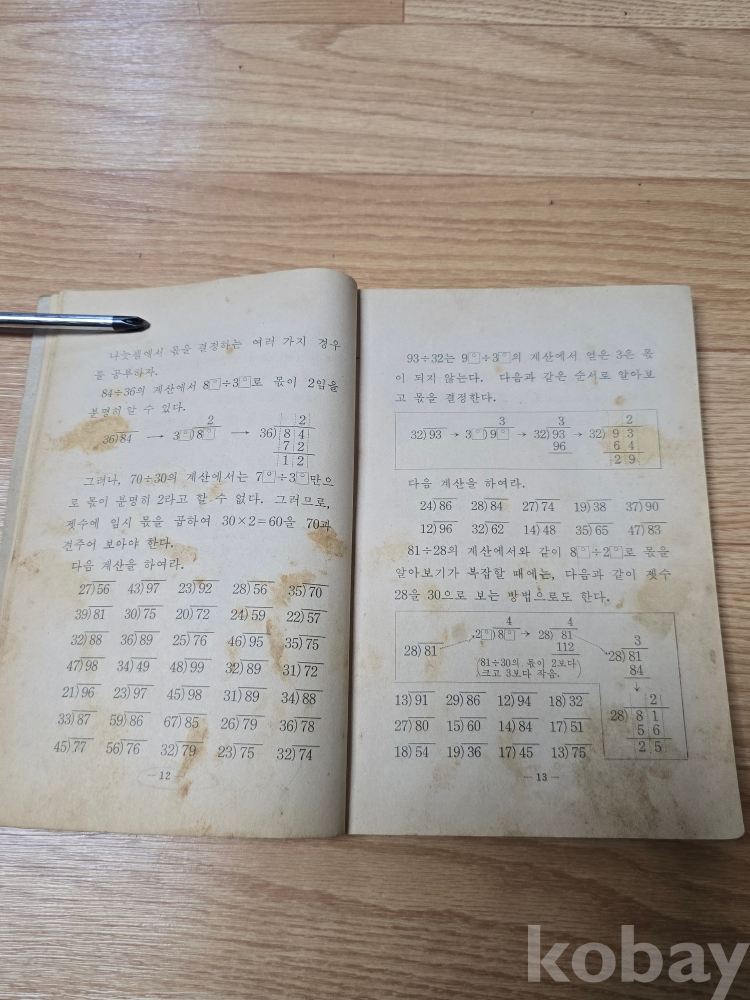 나눗셈에서 몫을 결정하는 여러 가지 경우
를 공부하자.
84÷36의 계산에서 8□÷3□로 몫이 2임을
분명히 알 수 있다.
2 2
36)84 → 3□)8□ → 36)84
72
12
그러나, 70÷30의 계산에서는 7□÷3□만으
로 몫이 분명히 2라고 할 수 없다. 그러므로,
젯수에 임시 몫을 곱하여 30×2=60을 70과
견주어 보아야 한다.
다음 계산을 하여라.
27)56 43)97 23)92 28)56 35)70
39)81 30)75 20)72 24)59 22)57
32)88 36)89 25)76 46)95 35)75
47)98 34)49 48)99 32)89 31)72
21)96 23)97 45)98 31)89 34)88
33)87 59)86 67)85 26)79 36)78
45)77 56)76 32)79 23)75 32)74
— 12 —
93÷32는 9□÷3□의 계산에서 얻은 3은 몫
이 되지 않는다. 다음과 같은 순서로 알아보
고 몫을 결정한다.
3 3 2
32)93 → 3□)9□ → 32)93 → 32)93
96 64
29
다음 계산을 하여라.
24)86 28)84 27)74 19)38 37)90
12)96 32)62 14)48 35)65 47)83
81÷28의 계산에서와 같이 8□÷2□로 몫을
알아보기가 복잡할 때에는, 다음과 같이 젯수
28을 30으로 보는 방법으로도 한다.
4 4
28)81 2□)8□ → 28)81
112
(81÷30의 몫이 2보다
크고 3보다 작음.)
3
28)81
84
↓
2
28)81
56
25
13)91 29)86 12)94 18)32
27)80 15)60 14)84 17)51
18)54 19)36 17)45 13)75
— 13 —
kobay